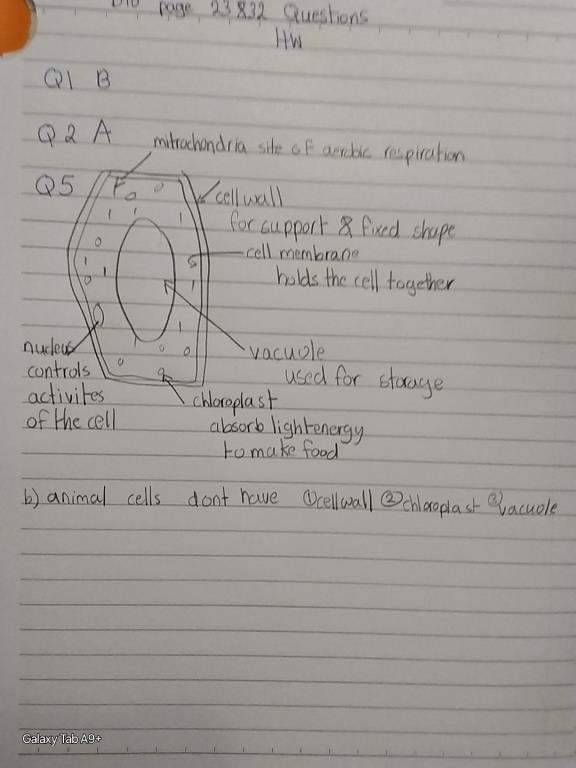 Bio page 23 & 32 Questions
HW
Q1 B
Q2 A
mitrochondria site of aerobic respiration
Q5
cell wall
for support & fixed shape
cell membrane
holds the cell together
nucleus
controls
activites
of the cell
vacuole
used for storage
chloroplast
absorb light energy
to make food
b) animal cells dont have ① cell wall ② chloroplast ③ vacuole
Galaxy Tab A9+